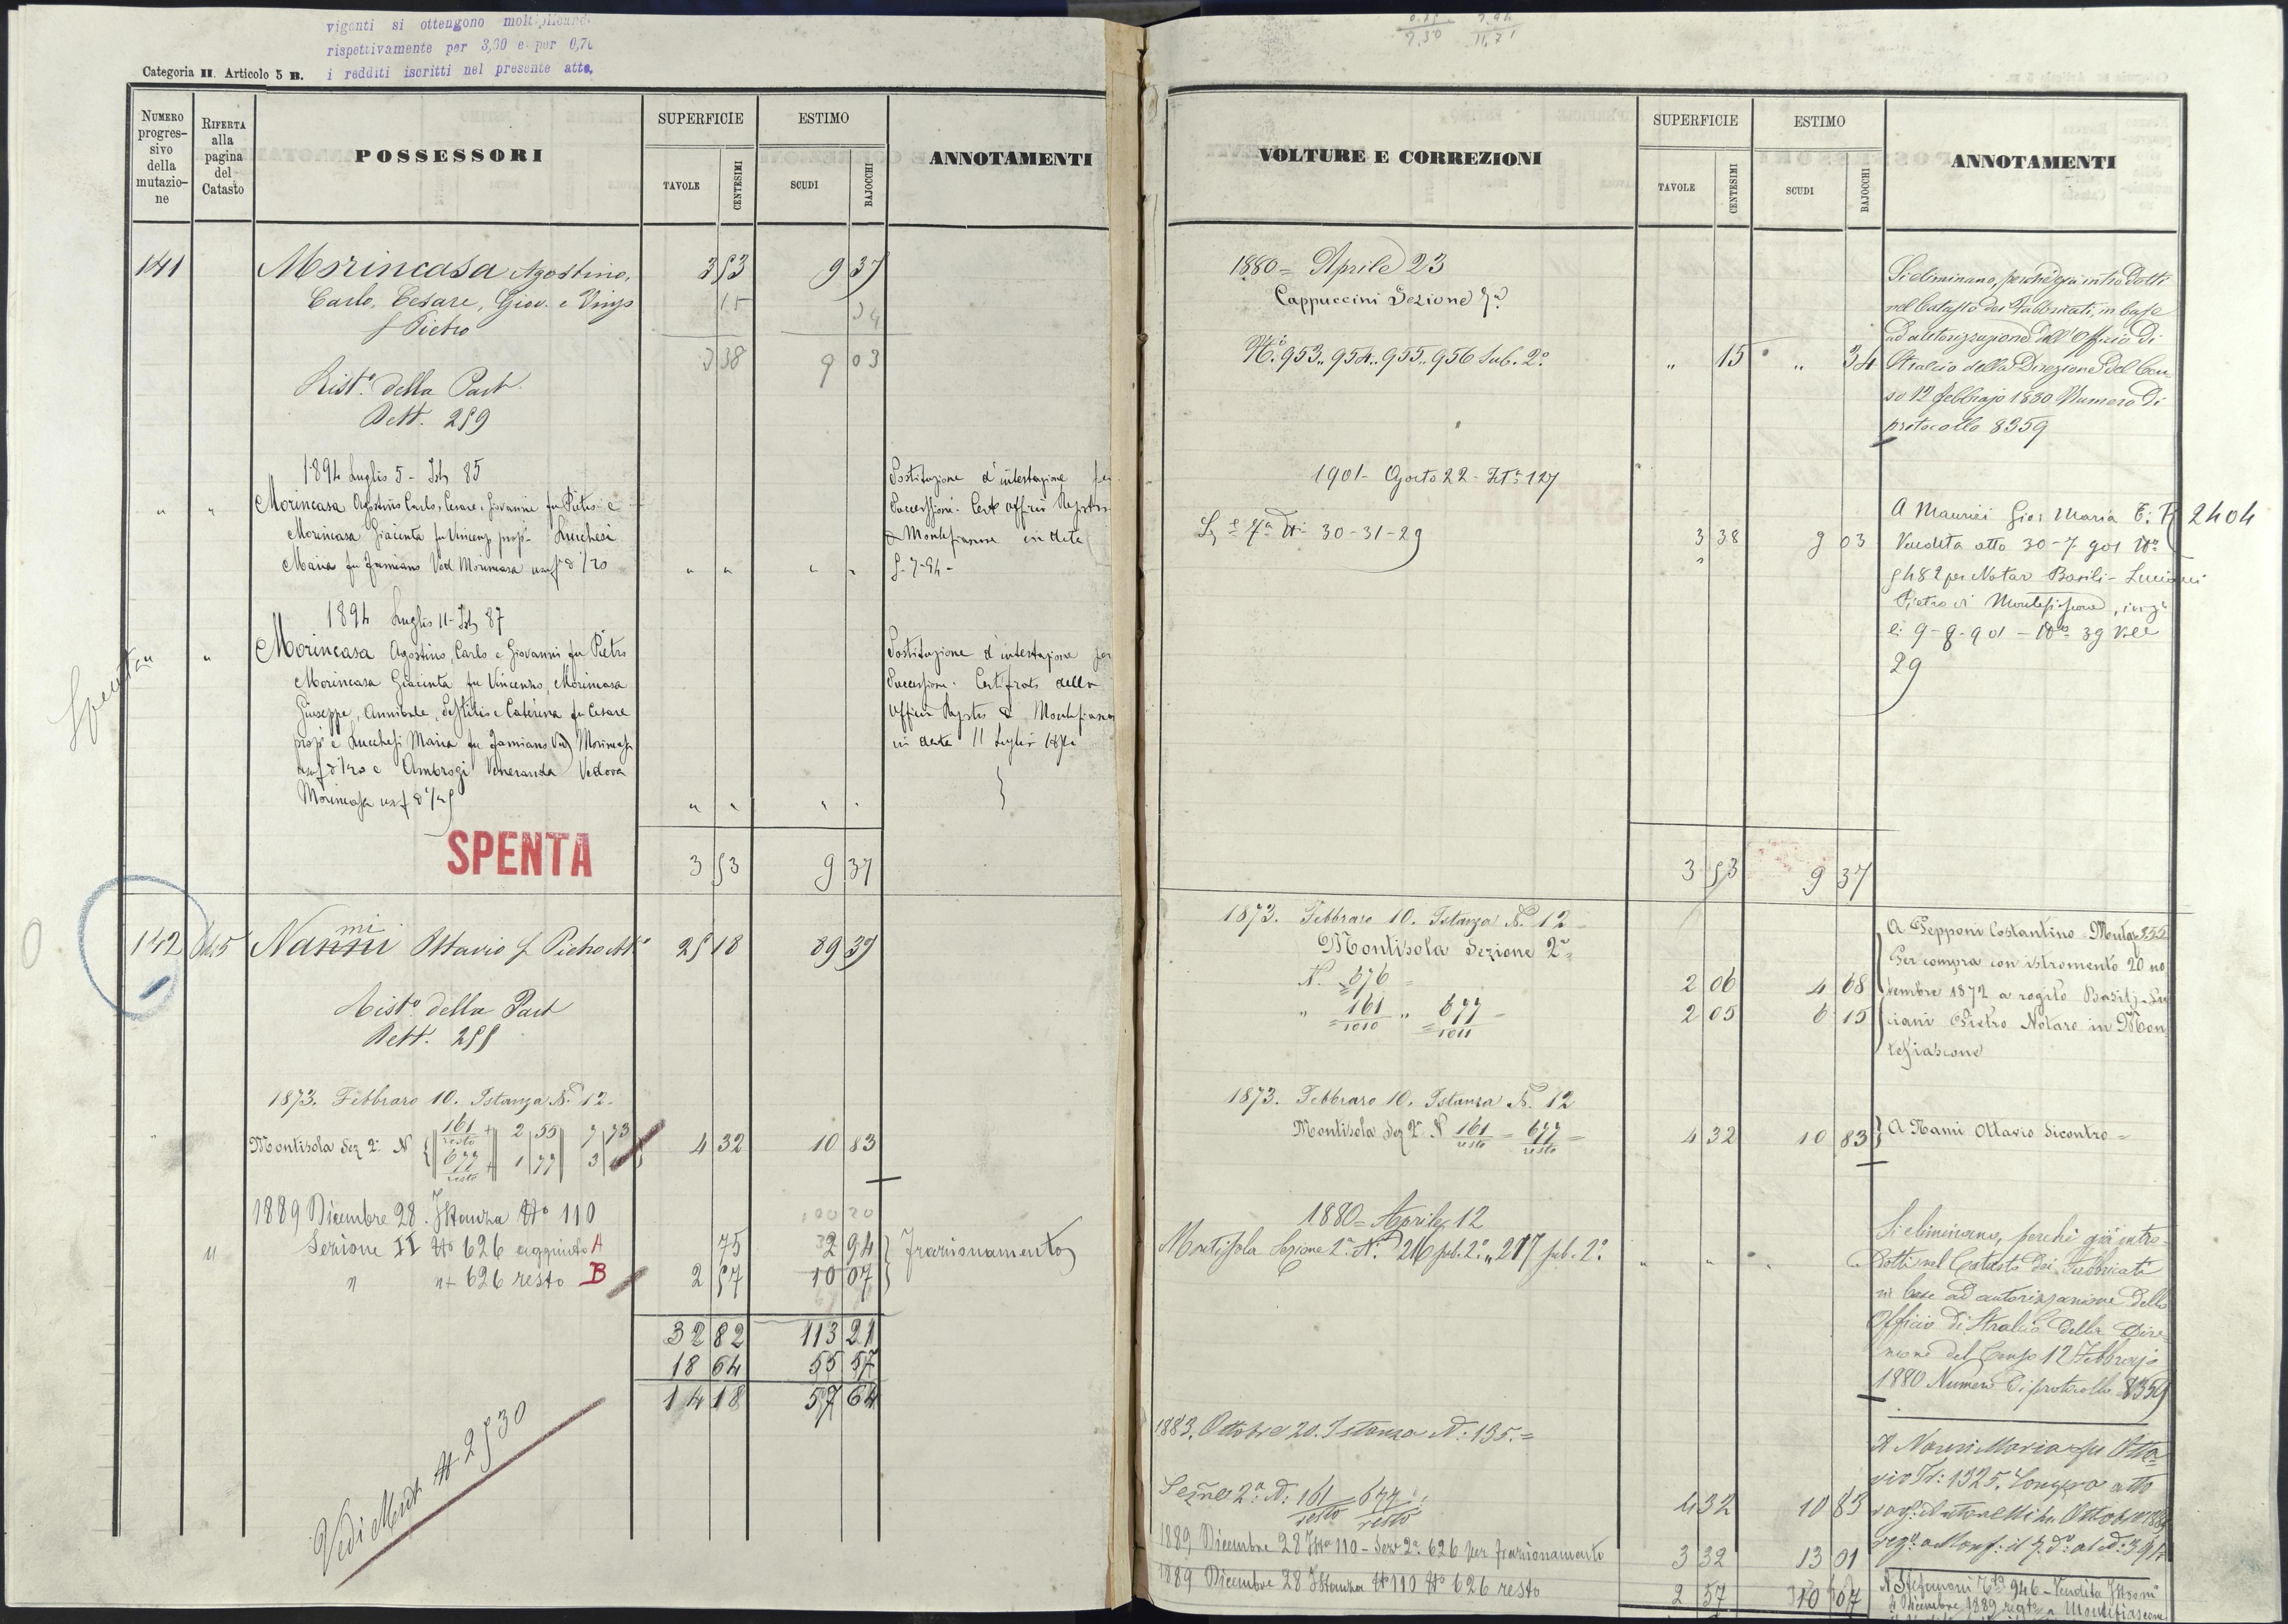 viganti si ottengono moltiplicand
rispettivamente per 3,90 e per 0,7
i redditi iscritti nel presente atto,
Categoria II. Articolo 5 B.
NUMERO progres-sivo della mutazio-ne
RIFERTA alla pagina del Catasto
POSSESSORI
SUPERFICIE
TAVOLE
CENTESIMI
ESTIMO
SCUDI
BAJOCCHI
ANNOTAMENTI
141 Morincasa Agostino, 3 53 9 37
Carlo, Cesare, Giov. e Vinzo 15 34
f Pietro
3 38 9 03
Rist.o della Part
Rett. 259
1894 Luglio 5 - Ist 85
" " Morincasa Agostino Carlo, Cesare, Giovanni fu Pietro e
Morincasa Giacinta fu Vincenzo prop. Lucchesi
Maria fu Damiano Ved Morincasa usuf d 1/20 " " " "
Sostituzione d'intestazione per
Successione. Cert officio Registro
Montefiascone in data
5-7-94-
1894 Luglio 11 - Ist 87
" " Morincasa Agostino, Carlo e Giovanni fu Pietro
Morincasa Giacinta fu Vincenzo, Morincasa
Giuseppe, Annibale, e Caterina fu Cesare
prop e Lucchesi Maria fu Damiano Ved Morincasa
usuf d 1/20 e Ambrogi Veneranda Vedova
Morincasa usuf d " " " "
Sostituzione d'intestazione per
Successione. Certificato dello
Officio Registro Montefiascone
in data 11 Luglio 1894
Spenta
SPENTA
3 53 9 37
142 Nanni mi Ottavio f Pietro 25 18 89 39
Rist.o della Part
Rett.
1873. Febbraro 10. Istanza N. 12.
Montisola Sez 2.a N 161 resto 2 55 7 73
677 resto 1 77 3
4 32 10 83
1889 Dicembre 28. Istanza No 110
" Sezione II No 626 aggiunto A 75 2 94
" " 626 resto B 2 57 10 07
Frazionamento
32 82 113 21
18 64 55 57
14 18 57 64
Vedi Mut # 2530
VOLTURE E CORREZIONI
SUPERFICIE
TAVOLE
CENTESIMI
ESTIMO
SCUDI
BAJOCCHI
ANNOTAMENTI
1880 = Aprile 23
Cappuccini Sezione
N.i 953.. 954.. 955.. 956 Sub. 2.o " 15 " 34
Si eliminano, perché già introdotti
nel Catasto dei Fabbricati, in base
ad autorizzazione dell'Officio di
Stralcio della Direzione del Cen
so 12 febbrajo 1880 Numero di
protocollo 8359
1901 - Agosto 22 - Ist.a 127
30-31-29 3 38 9 03
A Maurizi Gio: Maria T: R 2404
Vendita atto 30-7-901
9482 per Notar Basili-Luciani
Pietro di Montefiascone,
9-8-901 - No 39 Vol
29
3 53 9 37
1873. Febbraro 10. Istanza N. 12
Montisola Sezione 2.a
N. 676 2 06 4 68
" 161/1010 " 677/1011 2 05 6 15
A Pepponi Costantino Mutaz
Per compra con istromento 20 no
vembre 1872 a rogito Basilj-Lu
ciani Pietro Notaro in Mon
tefiascone
1873. Febbraro 10. Istanza N. 12
Montisola Sez 2.a N 161 resto = 677 resto = 4 32 10 83
A Nami Ottavio dicontro =
1880 = Aprile 12
Montisola Sezione 2.a N.i 216 sub. 2.o " 217 sub. 2.o " "
Si eliminano, perché già intro-
dotti nel Catasto dei Fabbricati
in base ad autorizzazione dello
Officio di Stralcio della Dire
zione del Censo 12 Febbrajo
1880 Numero di protocollo 8359
1883. Ottobre 20. Istanza N: 135. =
Sezne 2.a N: 161 resto 677 resto 4 32 10 83
A Nanni Maria fu Otta
vio Tr: 1325. Compra atto
1889 Dicembre 28 Ista 110 - Sez 2.a 626 per frazionamento 3 32 13 01
1889 Dicembre 28 Istanza No 110 No 626 resto 2 57 10 07
A Stefanoni 946 - Vendita
Dicembre 1889 Montefiascone